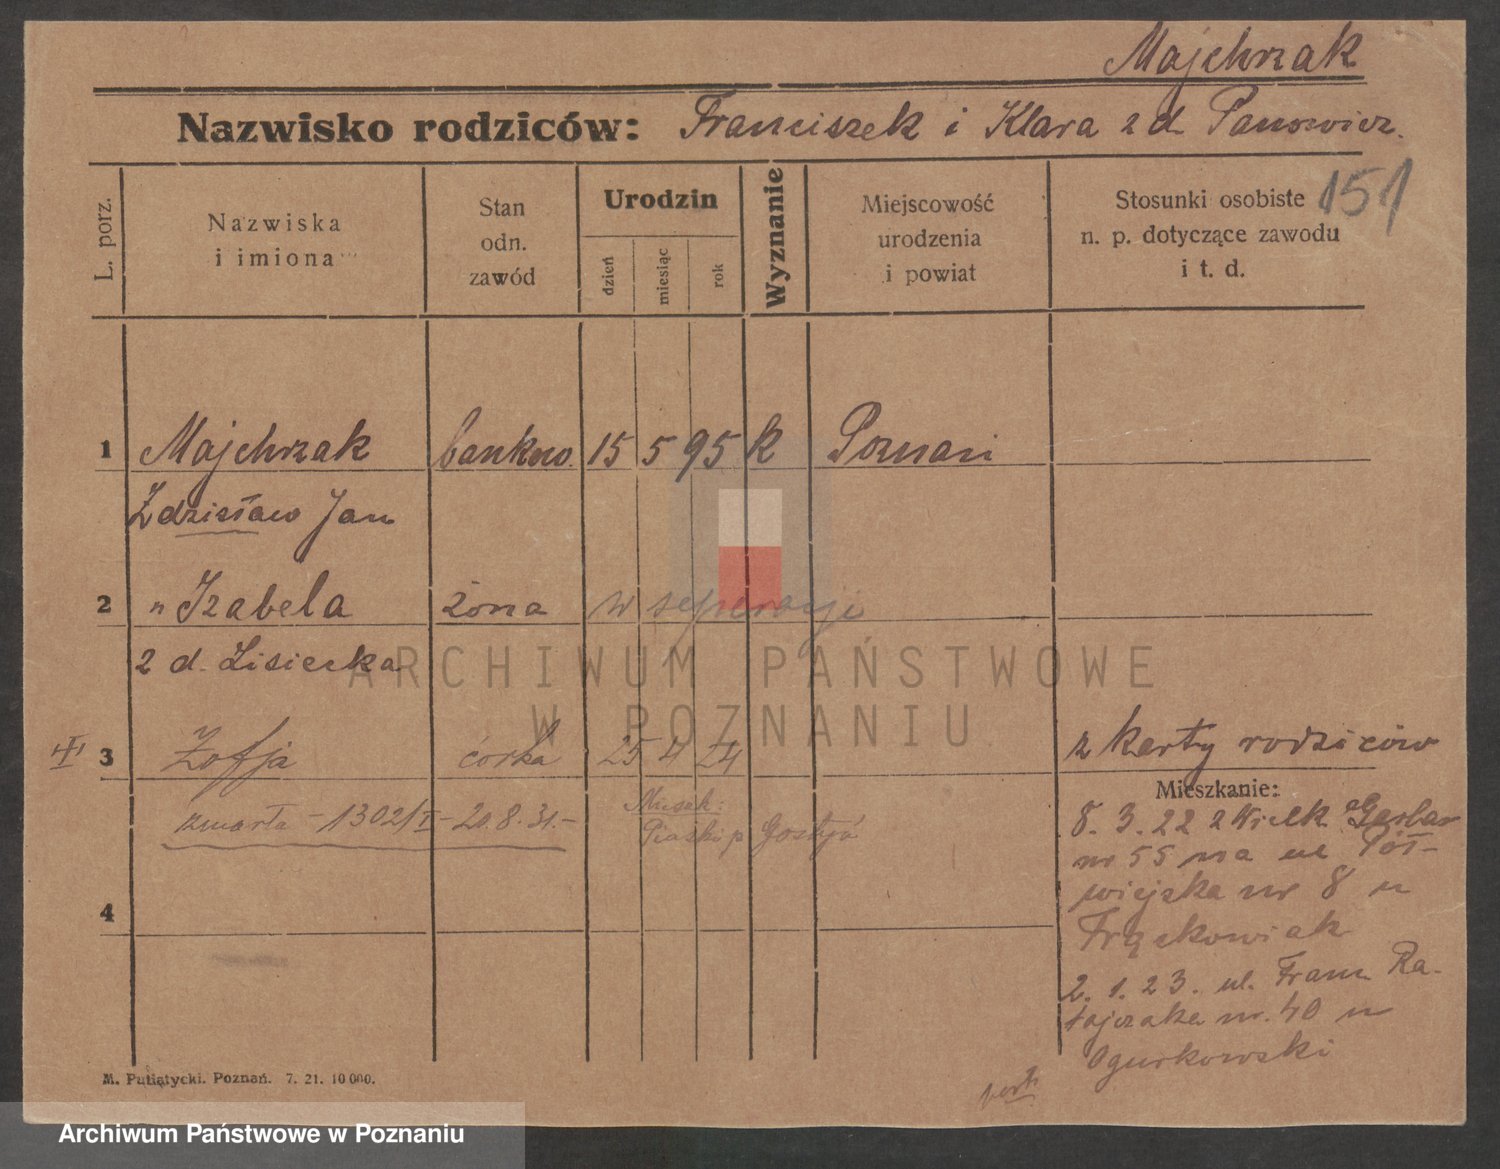 Majchrzak
Nazwisko rodziców: Franciszek i Klara z d. Panowicz.
151
L. porz.
Nazwiska
i imiona
Stan
odn.
zawód
Urodzin
dzień
miesiąc
rok
Wyznanie
Miejscowość
urodzenia
i powiat
Stosunki osobiste
n. p. dotyczące zawodu
i t. d.
1 Majchrzak bankow. 15 5 95 k Poznań
Zdzisław Jan
2 " Izabela żona w seperacji
z d. Lisiecka
3 Zofja córka 25 4 24 z karty rodziców
zmarła - 1302/I - 20.8.31.-
Mieszk:
Piaski p. Gostyń
4
Mieszkanie:
8. 3. 22 z Wielk. Garbar
nr 55 na ul. Pół-
wiejska nr 8 u
Frąckowiak
2. 1. 23. ul. Franc. Ra-
tajczaka nr. 40 u
Ogurkowski
M. Putiatycki. Poznań. 7. 21. 10 000.
ARCHIWUM PAŃSTWOWE
W POZNANIU
Archiwum Państwowe w Poznaniu